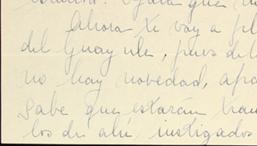 Ahora te voy a
del Guayule, pues de
no hay novedad,
sabe que estarán
los de ahí instigados